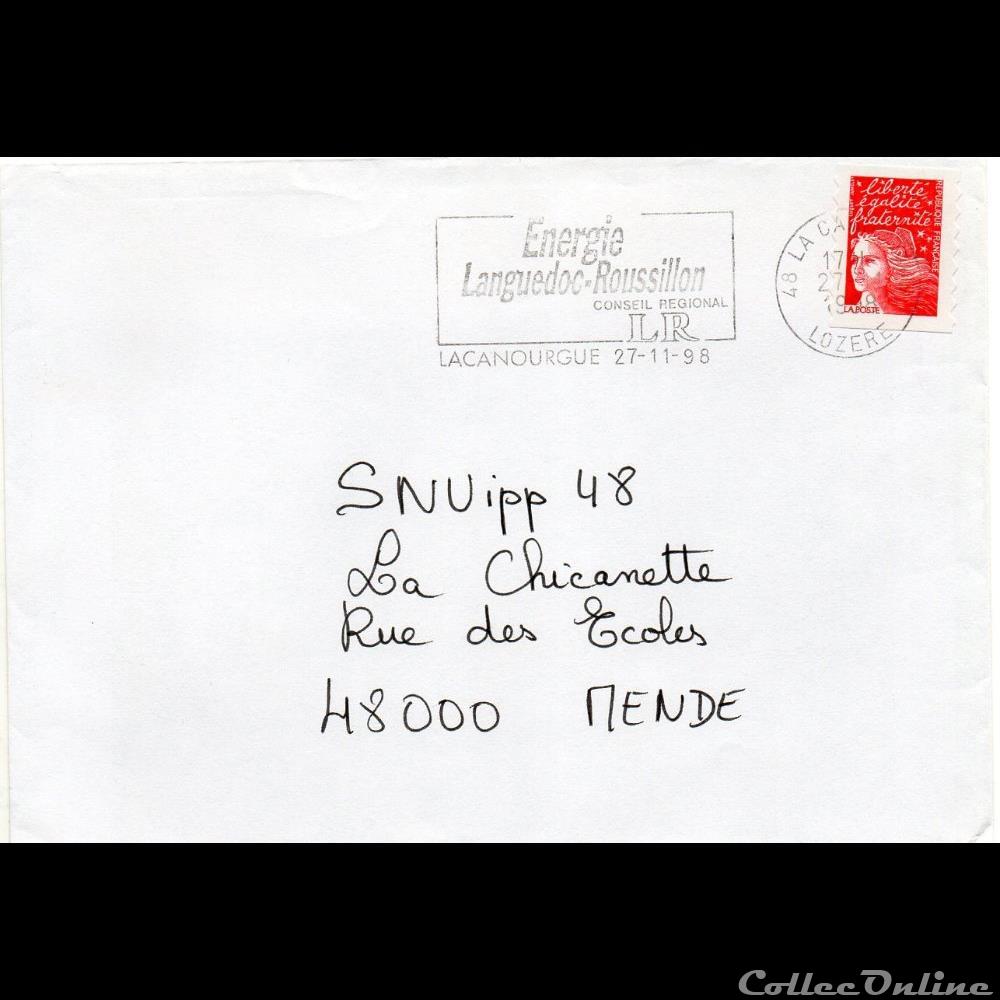 Energie
Languedoc-Roussillon
CONSEIL REGIONAL
LR
LACANOURGUE 27-11-98
48 LA CA
LOZERE
liberté
égalité
fraternité
REPUBLIQUE FRANÇAISE
LA POSTE
SNUipp 48
La Chicanette
Rue des Ecoles
48000 MENDE
CollecOnline